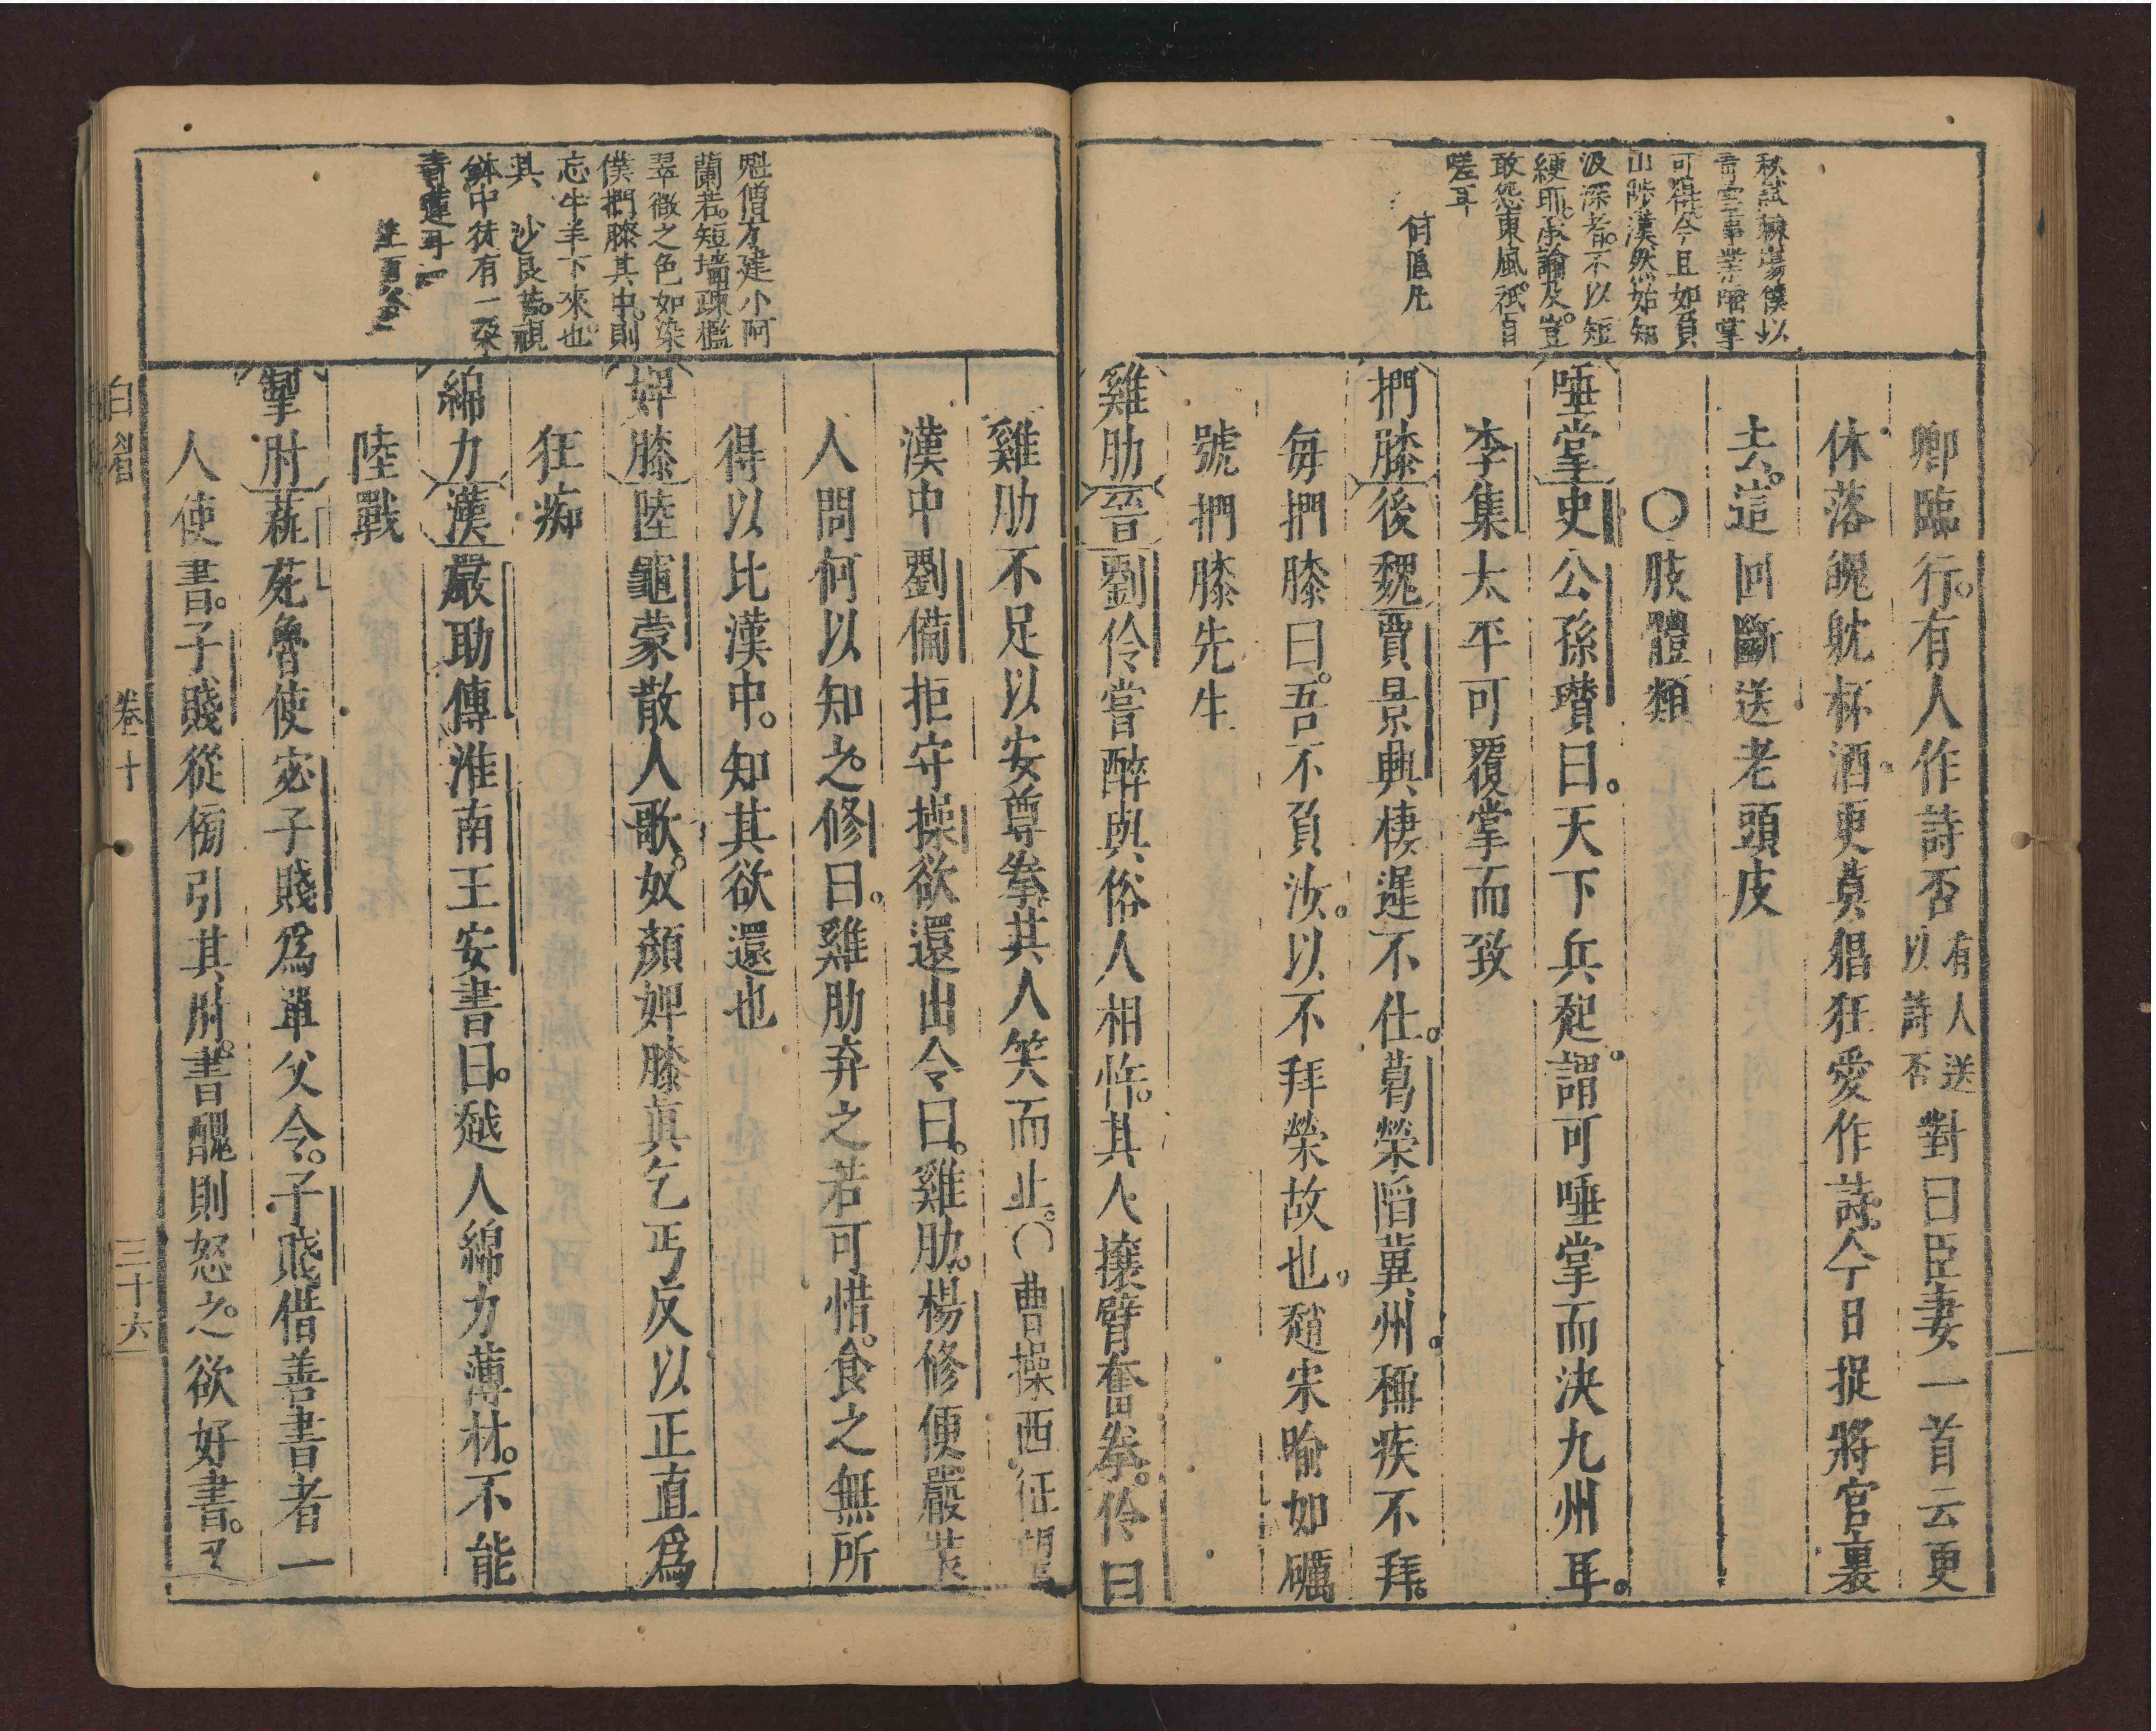 秋試僕以
可得今且如負
山陟漢然始知
汲深者不以短
綆耶承諭及豈
敢怨東風祇自
嗟耳
何偃凡
鄉臨行。有人作詩否有人送以詩否對曰臣妻一首云更
休落魄躭杯酒。更莫猖狂愛作詩。今日捉將官裏
去。這回斷送老頭皮
〇肢體類
唾掌史公孫瓚曰。天下兵起。謂可唾掌而決九州耳。
李集太平可覆掌而致
捫膝後魏賈景興棲遲不仕。葛榮陷冀州。稱疾不拜。
每捫膝曰。吾不負汝。以不拜榮故也。趙宋喻如礪
號捫膝先生
雞肋晉劉伶嘗醉與俗人相忤。其人攘臂奮拳。伶曰
魁僧方建小阿
蘭若。短墻疎檻
翠微之色如染
僕捫膝其中。則
忘牛羊下來也。
其 沙良苦。視
鉢中徒有一朶
青蓮耳
雞肋不足以安尊拳其人笑而止。〇曹操西征望
漢中劉備拒守操欲還出令曰。雞肋。楊修便嚴裝
人問何以知之。修曰。雞肋弃之若可惜。食之無所
得以比漢中。知其欲還也
婢膝陸龜蒙散人歌。奴顏婢膝真乞丐反以正直爲
狂痴
綿力漢嚴助傳淮南王安書曰。越人綿力薄材。不能
陸戰
掣肘巫馬魯使宓子賤爲單父令。子賤借善書者一
人使書。子賤從傍引其肘。書醜則怒之。欲好書。又
白眉
卷十
三十六